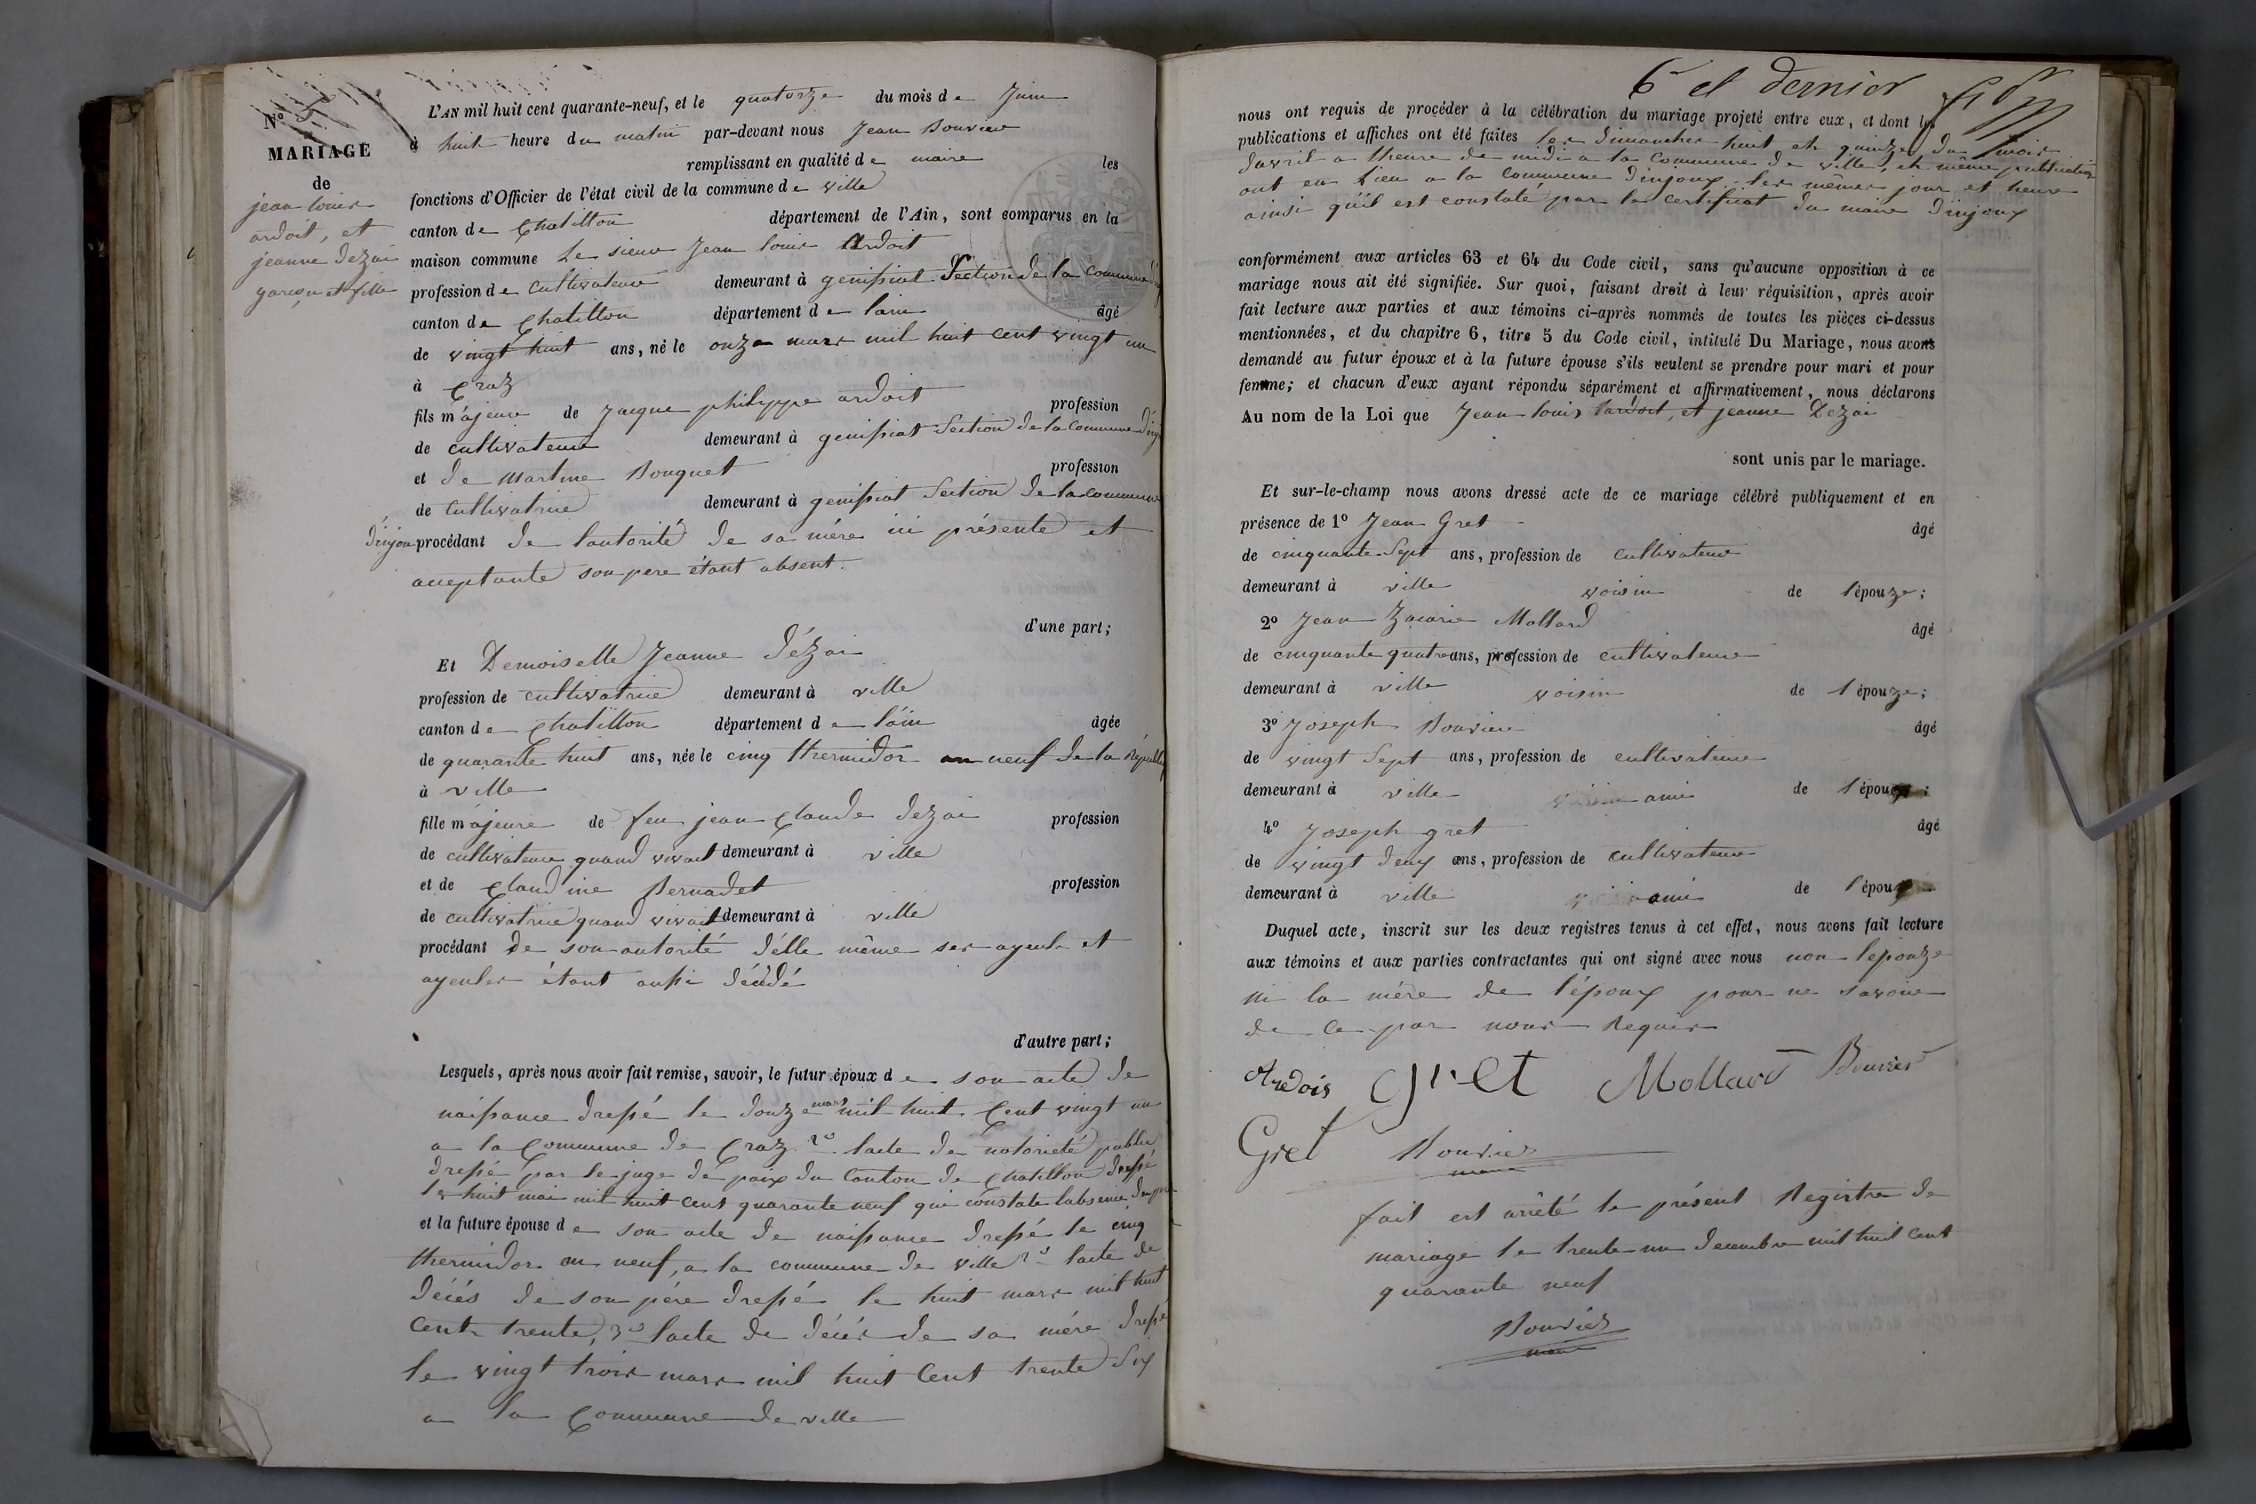 N° 5
MARIAGE
de
jean louis
ardoit, et
jeanne dezai
garçon et fille
L'AN mil huit cent quarante-neuf, et le quatorze du mois de Juin
à huit heure du matin par-devant nous Jean Bouvier
remplissant en qualité de maire les
fonctions d'Officier de l'état civil de la commune de ville
canton de Chatillon département de l'Ain, sont comparus en la
maison commune Le sieur Jean louis Ardoit
profession de Cultivateur demeurant à genissiat Section de la Commune
canton de Chatillon département de lain âgé
de vingt huit ans, né le onze mars mil huit cent vingt un
à Craz
fils majeur de Jacque philippe ardoit profession
de cultivateur demeurant à genissiat Section de la Commune
et de Martine Bouquet profession
de Cultivatrice demeurant à genissiat Section de la commune
dinjou procédant de lautorité de sa mère ici présente et
acceptante son pere étant absent.
d'une part;
Et Demoiselle Jeanne dézai
profession de cultivatrice demeurant à ville
canton de Chatillon département de lain âgée
de quarante huit ans, née le cinq thermidor an neuf de la Républ
à ville
fille majeure de feu jean Claude dezai profession
de cultivateur quand vivait demeurant à ville
et de Claudine Bernadet profession
de cultivatrice quand vivait demeurant à ville
procédant de son autorité délle même ses ayeuls et
ayeules étant aussi décédé
d'autre part;
Lesquels, après nous avoir fait remise, savoir, le futur époux de son acte de
naissance dressé le douze mars mil huit Cent vingt un
a la Commune de Craz 2° lacte de notorieté public
dressé par le juge de paix du Canton de Chatillon dressé
le huit mai mil huit cent quarante neuf qui constate labsence du
et la future épouse de son acte de naissance dressé le cinq
thermidor an neuf, a la commune de ville 2° lacte de
décés de son pére dressé le huit mars mil huit
cent trente, 3° lacte de décés de sa mére dressé
le vingt trois mars mil huit Cent trente Six
a la Commune de ville
6 et dernier
nous ont requis de procéder à la célébration du mariage projeté entre eux, et dont les
publications et affiches ont été faites les dimanches huit et quinze du mois
davril a lheure de midi a la Commune de ville, et même publication
ont eu lieu a la Commune dinjoux les mêmes jour et heure
ainsi quil est constaté par le certificat du maire dinjoux
conformément aux articles 63 et 64 du Code civil, sans qu'aucune opposition à ce
mariage nous ait été signifiée. Sur quoi, faisant droit à leur réquisition, après avoir
fait lecture aux parties et aux témoins ci-après nommés de toutes les pièces ci-dessus
mentionnées, et du chapitre 6, titre 5 du Code civil, intitulé Du Mariage, nous avons
demandé au futur époux et à la future épouse s'ils veulent se prendre pour mari et pour
femme; et chacun d'eux ayant répondu séparément et affirmativement, nous déclarons
Au nom de la Loi que Jean louis ardoit, et jeanne Dezai
sont unis par le mariage.
Et sur-le-champ nous avons dressé acte de ce mariage célébré publiquement et en
présence de 1° Jean Gret âgé
de cinquante-Sept ans, profession de cultivateur
demeurant à ville voisin de l'épouze;
2° Jean Zacarie Mollard âgé
de cinquante quatre ans, profession de cultivateur
demeurant à ville voisin de l'épouze;
3° Joseph Bouvier âgé
de vingt Sept ans, profession de cultivateur
demeurant à ville ami de l'épou ;
4° Joseph gret âgé
de vingt deux ans, profession de cultivateur
demeurant à ville ami de l'épou
Duquel acte, inscrit sur les deux registres tenus à cet effet, nous avons fait lecture
aux témoins et aux parties contractantes qui ont signé avec nous non lépouze
ni la mére de l'époux pour ne savoir
de ce par nous Requis
Ardois gret Mollard Bouvier
Gret Bouvier
maire
fait est arrêté le présent Registre de
mariage le trente un decembre mil huit cent
quarante neuf
Bouvier
maire